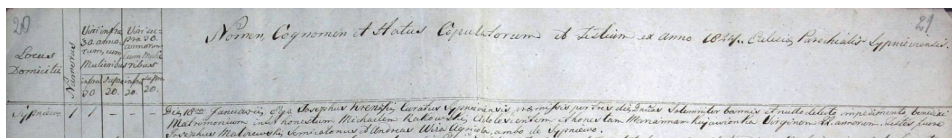 29
29
Nomen, Cognomen et Status Copulatorum et Testium ex anno 1824. Ecclesiae Parochialis Sypnieviensis
Locus
Domicilii
Numerus
Viri infra
30 anno
rum, cum
Mulieribus
infra
20
supra
20.
Viri su-
pra 30
annorum
cum Muli
eribus
infra
20.
supra
20.
Sypniewo 1 1 — — — Die 18va Januarii, Ego Josephus Krenski Curatus Sypnieviensis, praemissis per tres dies Dnicas Solemniter bannis et nullo detecto impedimento benedixi
Matrimonium inter honestum Michaelem Kakowski Adolescentem et honestam Mariannam Kijawionka Virginem.
Josephus Malzewski et Andreas Wira Agricola ambo de Sypniewo.